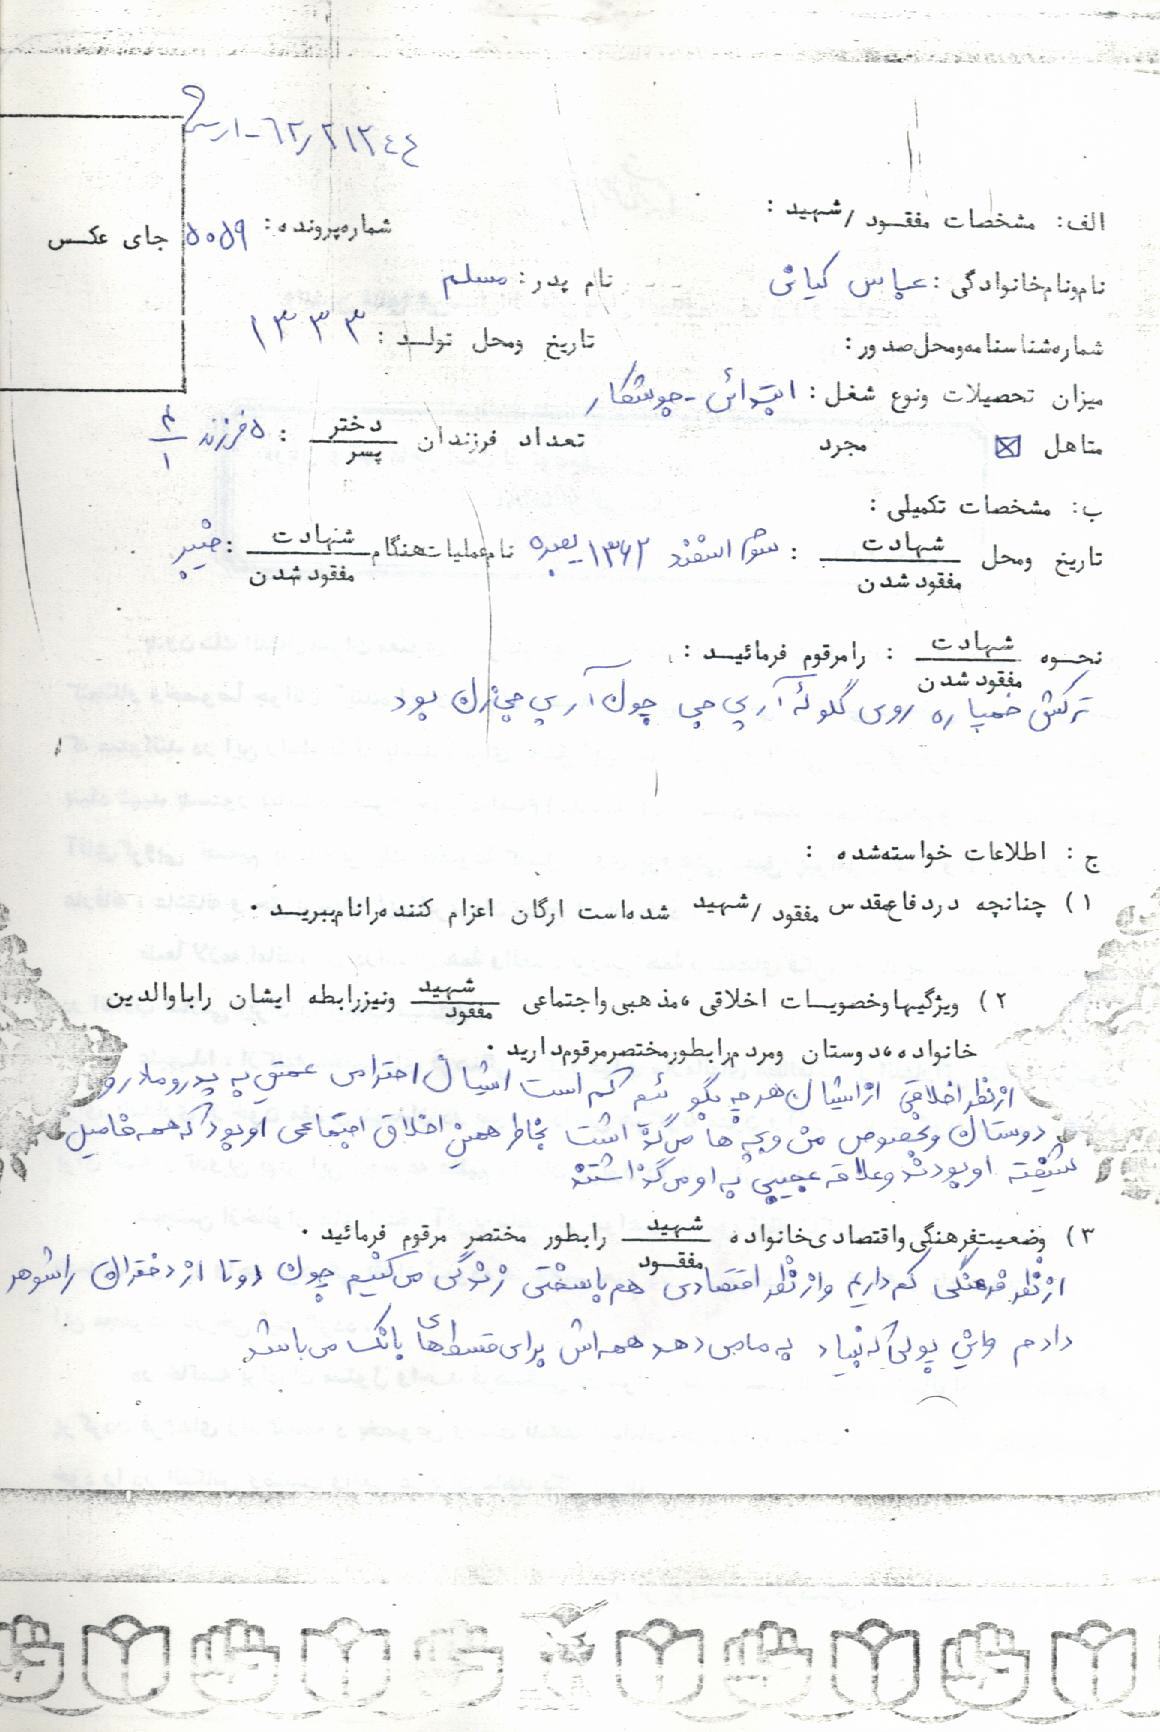 ۶۲/۲۱۲۴۴-ارس
الف: مشخصات مفقود/شهید :
شماره پرونده: ۵۰۵۹
جای عکس
نام‌ونام‌خانوادگی: عباس کیانی
نام پدر: مسلم
شماره‌شناسنامه‌ومحل‌صدور:
تاریخ ومحل تولد: ۱۳۳۳
میزان تحصیلات ونوع شغل: ابتدائی - جوشکار
متاهل ☒ مجرد
تعداد فرزندان دختر/پسر : ۵ فرزند ۴/۱
ب: مشخصات تکمیلی :
تاریخ ومحل شهادت/مفقودشدن : سوم اسفند ۱۳۶۲ بصره
نام‌عملیات‌هنگام شهادت/مفقودشدن : خیبر
نحوه شهادت/مفقودشدن : رامرقوم فرمائید :
ترکش خمپاره روی گلوله آرپی‌جی چون آرپی‌جی‌زن بود
ج: اطلاعات خواسته‌شده :
۱) چنانچه دردفاع‌مقدس مفقود/شهید شده‌است ارگان اعزام کننده‌رانام‌ببرید .
۲) ویژگیهاوخصوصیات اخلاقی ،مذهبی‌واجتماعی شهید/مفقود ونیزرابطه ایشان راباوالدین
خانواده ،دوستان ومردم‌رابطورمختصرمرقوم‌دارید .
از نظر اخلاقی از ایشان هر چه بگوئیم کم است ایشان احترامی عمیق به پدر و مادر و
دوستان و بخصوص من و بچه‌ها می‌گذاشت بخاطر همین اخلاق اجتماعی او بود که همه فامیل
شیفته او بودند و علاقه عجیبی به او می‌گذاشتند
۳) وضعیت‌فرهنگی‌واقتصادی‌خانواده شهید/مفقود رابطور مختصر مرقوم فرمائید .
از نظر فرهنگی کم داریم و از نظر اقتصادی هم با سختی زندگی می‌کنیم چون دو تا از دختران را شوهر
دادم و این پولی که بنیاد به ما می‌دهد همه‌اش برای قسط‌های بانک می‌باشد